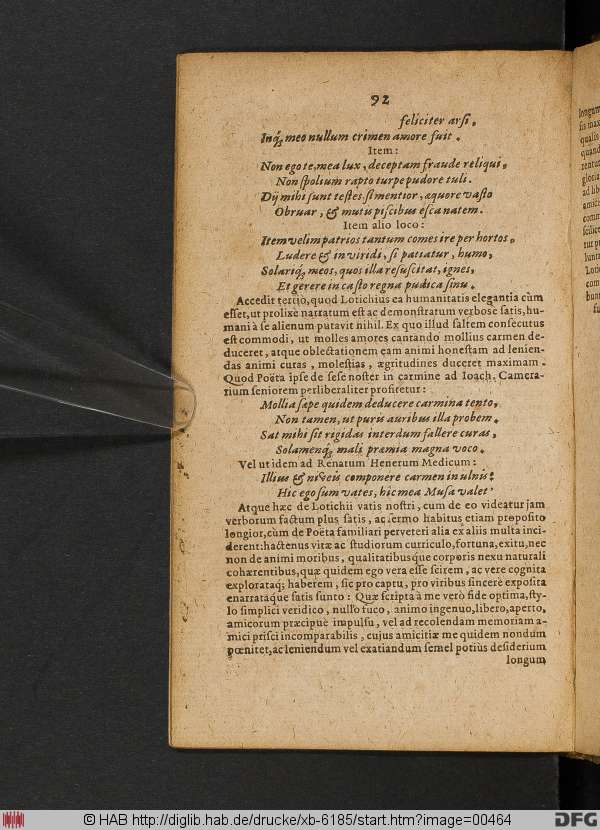 92
feliciter arsi,
Inq́; meo nullum crimen amore fuit.
Item:
Non ego te, mea lux, deceptam fraude reliqui,
Non spolium rapto turpe pudore tuli.
Dij mihi sunt testes si mentior, æquore vasto
Obruar, & mutis piscibus esca natem.
Item alio loco:
Item velim patrios tantum comes ire per hortos,
Ludere & in viridi, si patiatur, humo,
Solariq́; meos, quos illa resuscitat, ignes,
Et gerere in casto regna pudica sinu.
Accedit tertiò, quod Lotichius ea humanitatis elegantia cùm
esset, ut prolixè narratum est ac demonstratum verbose satis, hu-
mani à se alienum putavit nihil. Ex quo illud saltem consecutus
est commodi, ut molles amores cantando mollius carmen de-
duceret, atque oblectationem eam animi honestam ad lenien-
das animi curas, molestias, ægritudines duceret maximam.
Quod Poëta ipse de sese noster in carmine ad Ioach. Camera-
rium seniorem perliberaliter profitetur:
Mollia sæpe quidem deducere carmina tento,
Non tamen, ut puris auribus illa probem.
Sat mihi sit rigidas interdum fallere curas,
Solamenq́; mali præmia magna voco.
Vel ut idem ad Renatum Henerum Medicum:
Illius & niveis componere carmen in ulnis:
Hic ego sum vates, hic mea Musa valet
Atque hæc de Lotichii vatis nostri, cum de eo videatur jam
verborum factum plus satis, ac sermo habitus etiam proposito
longior, cùm de Poëta familiari perveteri alia ex aliis multa inci-
derent: hactenus vitæ ac studiorum curriculo, fortuna, exitu, nec
non de animi moribus, qualitatibusque corporis nexu naturali
cohærentibus, quæ quidem ego vera esse scirem, ac vere cognita
explorataq́; haberem, sic pro captu, pro viribus sincerè exposita
enarrataque satis sunto: Quæ scripta à me verò fide optima, sty-
lo simplici veridico, nullo fuco, animo ingenuo, libero, aperto,
amicorum præcipuè impulsu, vel ad recolendam memoriam a-
mici prisci incomparabilis, cujus amicitiæ me quidem nondum
pœnitet, ac leniendum vel exatiandum semel potiùs desiderium
longum
longam
sis max
qualis
quand
rentur
gloria
ad lib
amici
comm
scilice
tur p
lunt
Loti
com
bun
© HAB http://diglib.hab.de/drucke/xb-6185/start.htm?image=00464
DFG